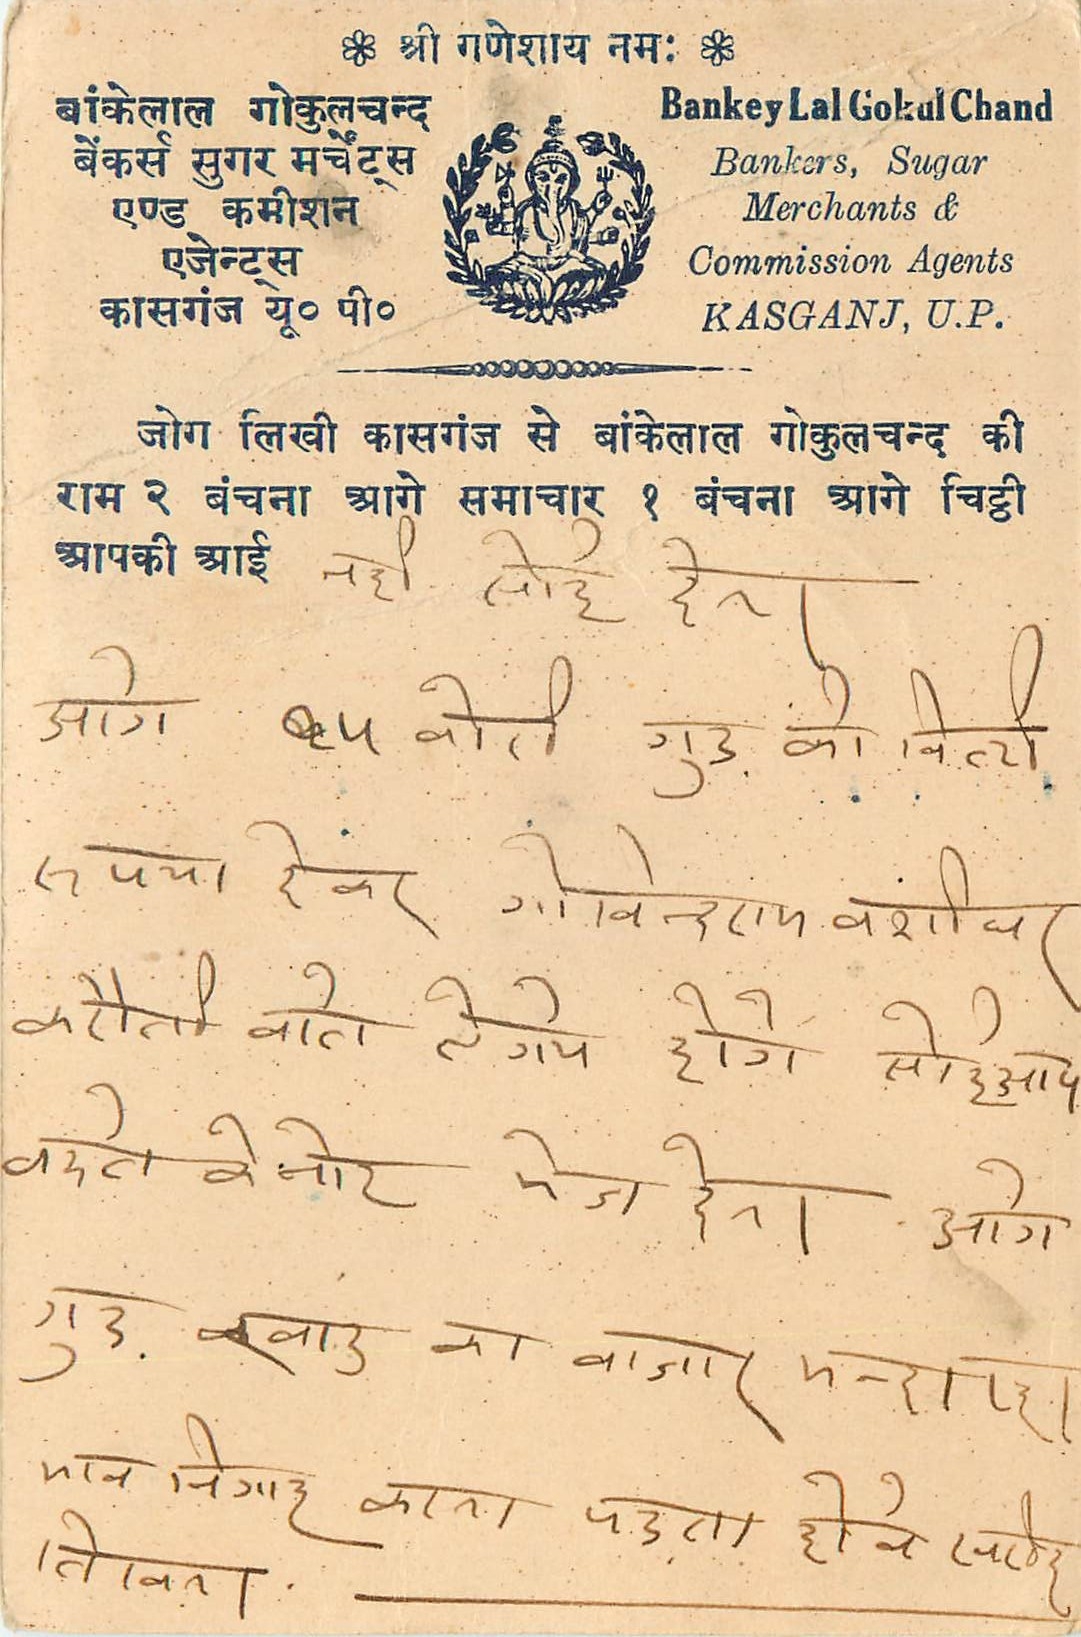 श्री गणेशाय नम:
बांकेलाल गोकुलचन्द
बेंकर्स सुगर मर्चेंट्स
एण्ड कमीशन
एजेन्ट्स
कासगंज यू० पी०
Bankey Lal Gokul Chand
Bankers, Sugar
Merchants &
Commission Agents
KASGANJ, U.P.
जोग लिखी कासगंज से बांकेलाल गोकुलचन्द की
राम २ बंचना आगे समाचार १ बंचना आगे चिट्ठी
आपकी आई नही सोई देना
आगे बोरी गुड़ की
रूपया देकर गोविन्दराम बंशीधर
करौली वाले ले गये होंगे सोई आप
के भेज देना आगे
गुड़ का बाजार मन्दा है
भाव निगाह करना पड़ता होवे
लिखना